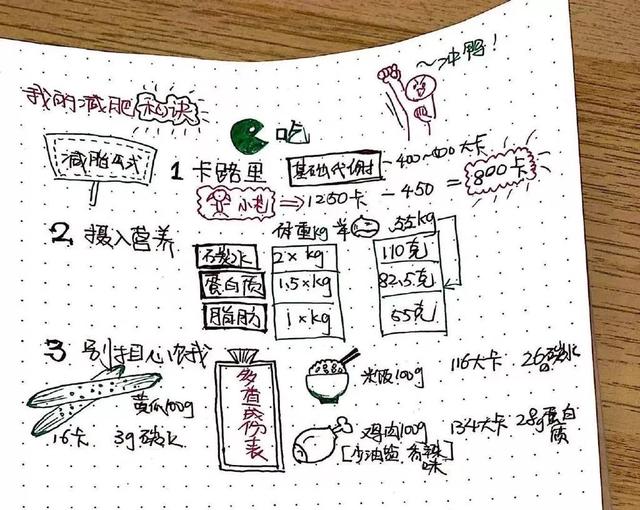 ~冲鸭！
我的减肥秘诀
吃
减脂公式
1 卡路里 基础代谢 -400~600大卡
小芒 ⇒ 1250卡 - 450 = 800卡
2、摄入营养 体重kg 55kg
碳水 2×kg 110克
蛋白质 1.5×kg 82.5克
脂肪 1×kg 55克
3 别担心有我
黄瓜100g
16卡 3g碳水
多查成份表
米饭100g 116大卡 26g碳水
鸡肉100g 134大卡 28g蛋白质
[少油盐, 香辣味]